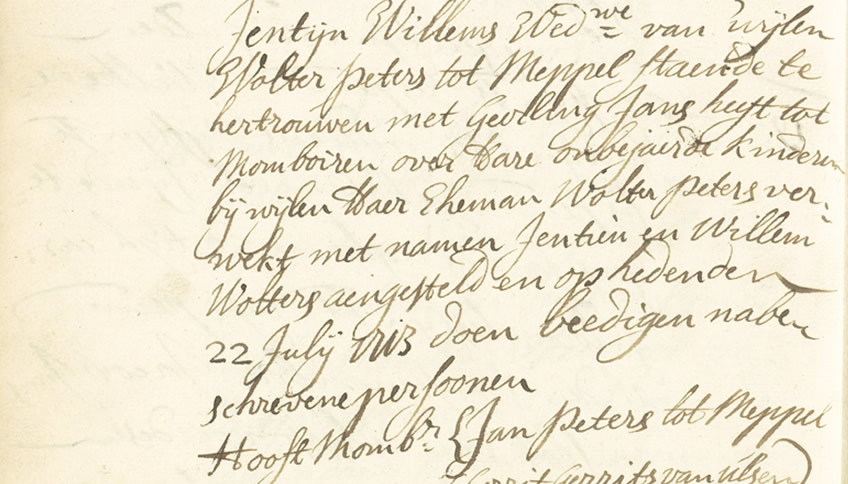 Jentijn Willems Wedwe van wijlen
Wolter peters tot Meppel staende te
hertrouwen met Geerling Jans heeft tot
Momboiren over Hare onbejaerde kinderen
bij wijlen Haer Eheman Wolter peters ver-
wekt met namen Jentien en Willem
Wolters aengesteld en op heden den
22 Julij 1713 doen beedigen nabe-
schrevene persoonen
Hooft Mombr { Jan peters tot Meppel
Gerrit Gerrits van Ulsen